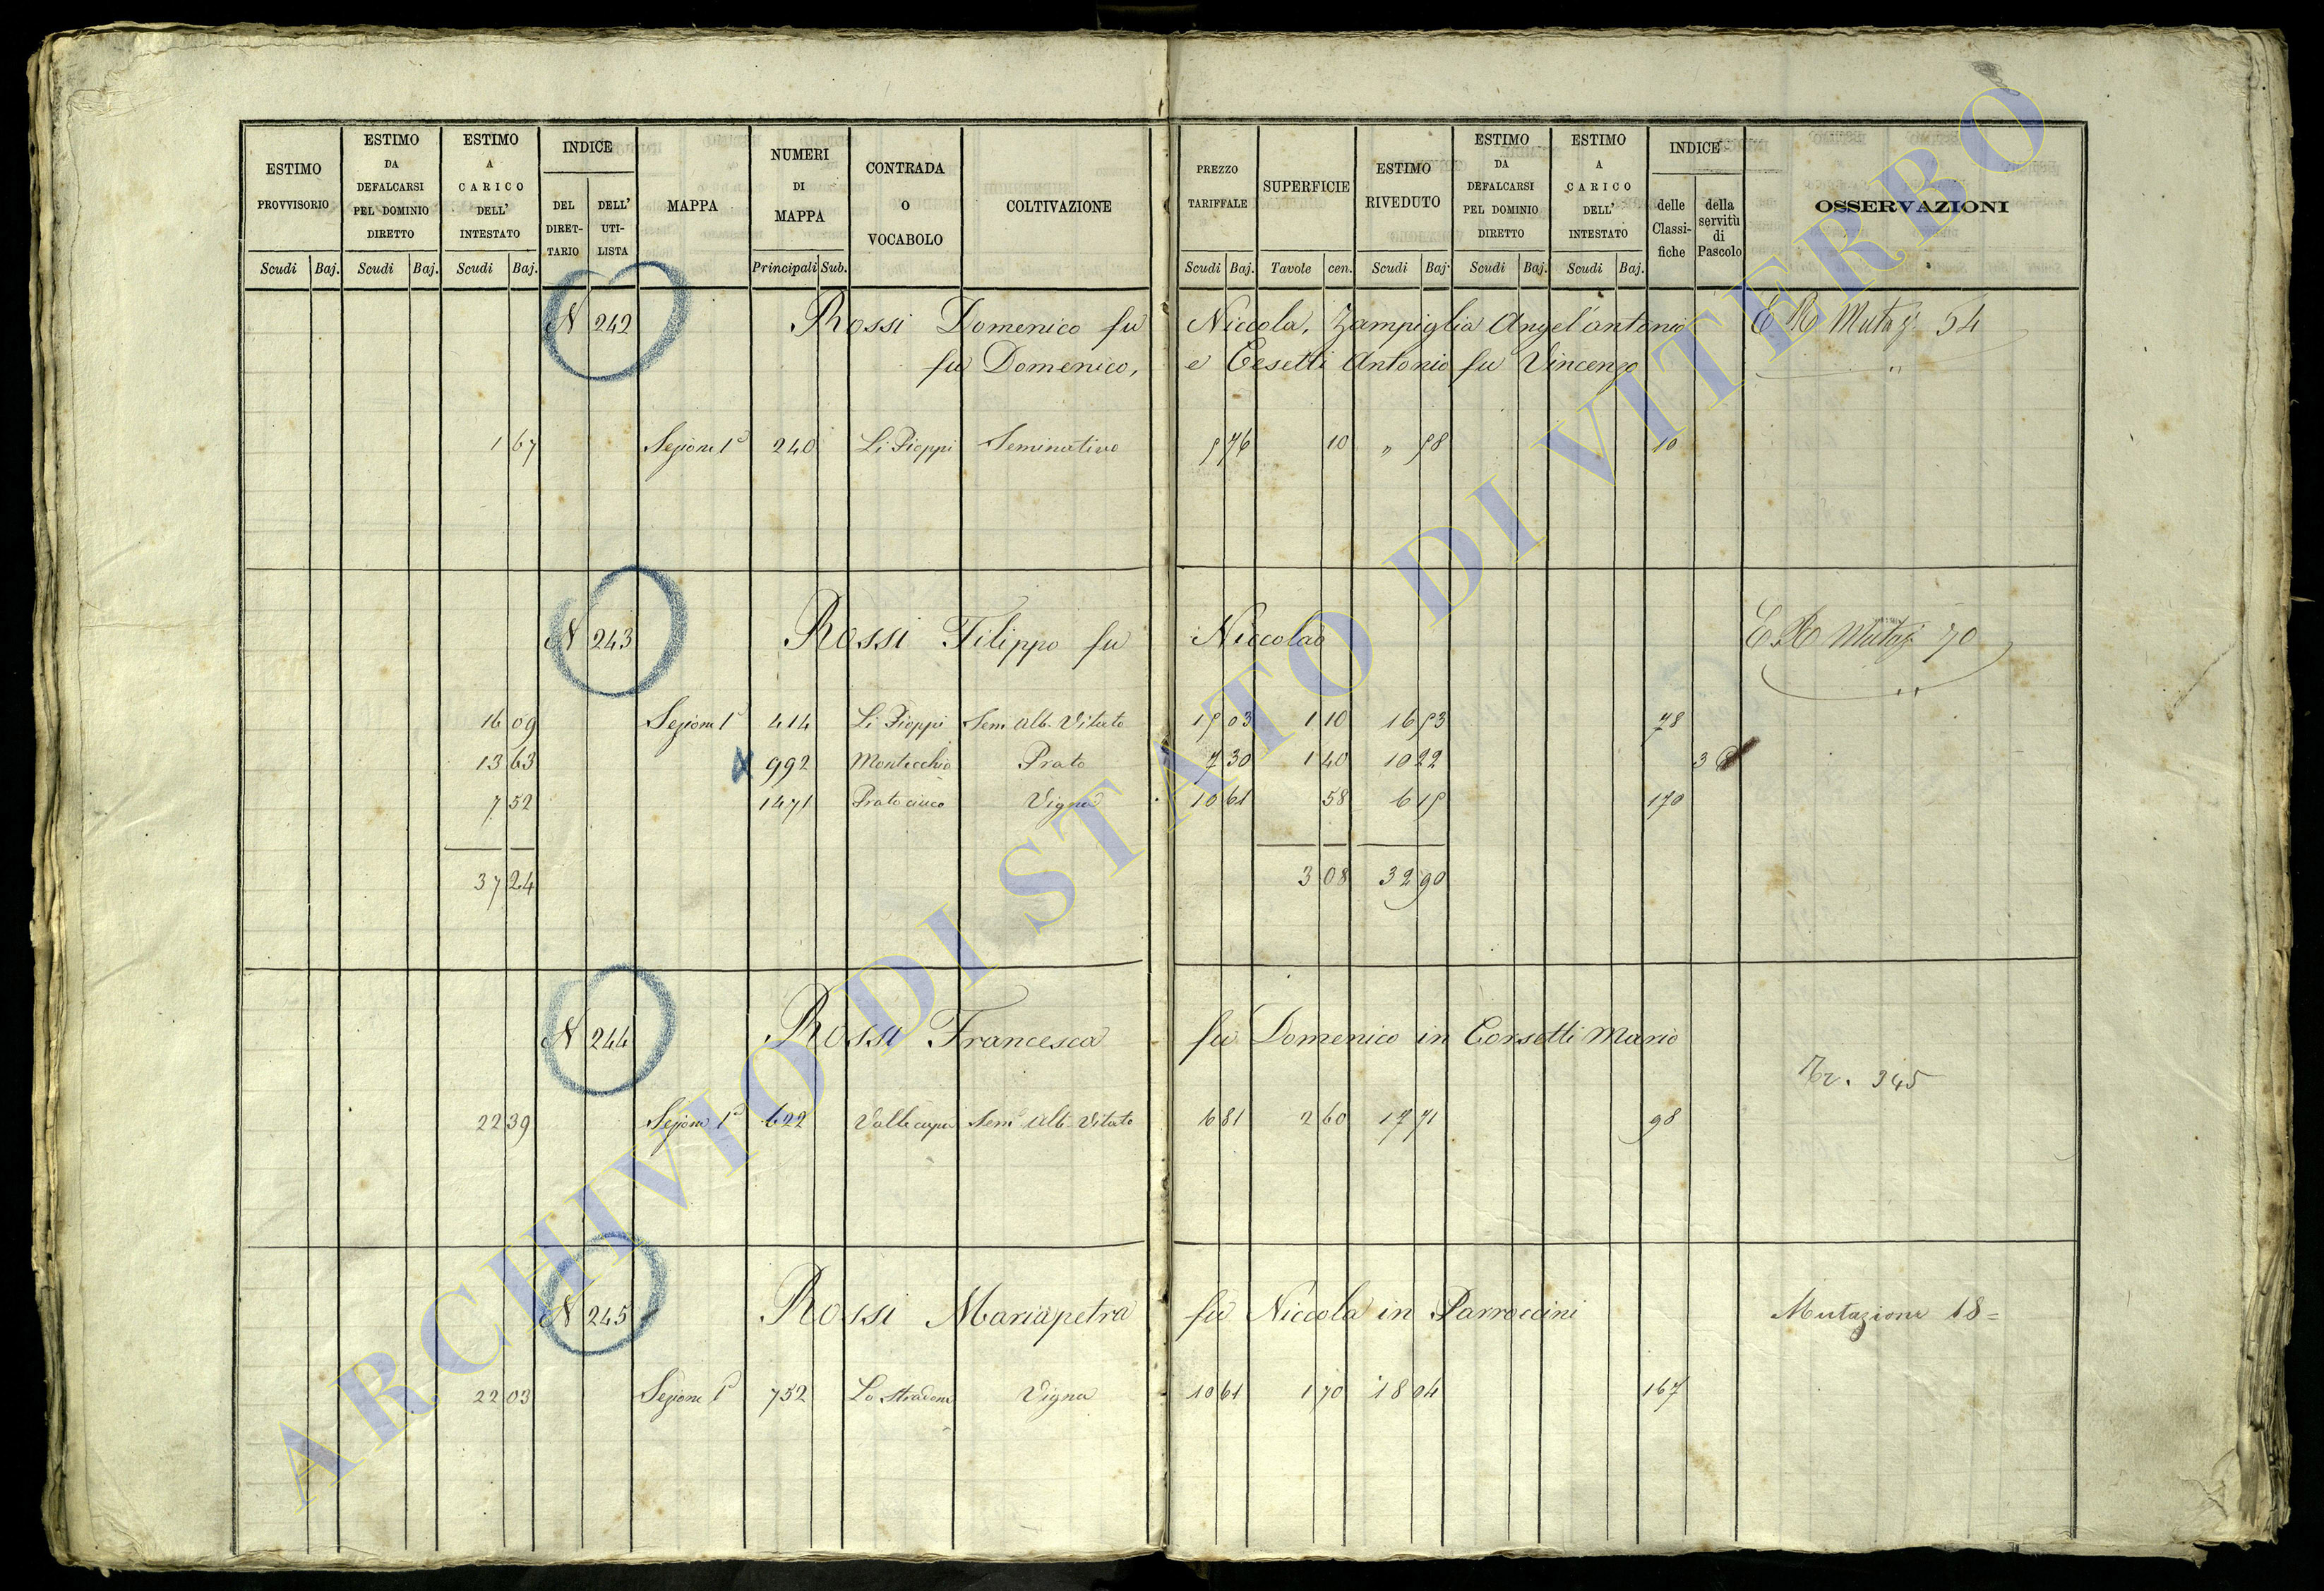 ESTIMO PROVVISORIO
ESTIMO DA DEFALCARSI PEL DOMINIO DIRETTO
ESTIMO A CARICO DELL' INTESTATO
INDICE
DEL DIRET-TARIO
DELL' UTI-LISTA
MAPPA
NUMERI DI MAPPA
CONTRADA O VOCABOLO
COLTIVAZIONE
PREZZO TARIFFALE
SUPERFICIE
ESTIMO RIVEDUTO
ESTIMO DA DEFALCARSI PEL DOMINIO DIRETTO
ESTIMO A CARICO DELL' INTESTATO
INDICE
delle Classi-fiche
della servitù di Pascolo
OSSERVAZIONI
Scudi Baj. Scudi Baj. Scudi Baj. Principali Sub. Scudi Baj. Tavole cen. Scudi Baj. Scudi Baj. Scudi Baj.
N 242 Rossi Domenico fu Niccola, Zampiglia Angel'antonio E R Mutaz. 54
fu Domenico, e Cesetti Antonio fu Vincenzo "
1 67 Sezione 1ª 240 Li Pioppi Seminativo 5 76 10 " 58 10
N 243 Rossi Filippo fu Niccola E R Mutaz. 70
16 09 Sezione 1ª 414 Li Pioppi Sem. Alb. Vitato 15 03 1 10 16 53 78
13 63 992 Montecchio Prato 7 30 1 40 10 22 3
7 52 1471 Vigna 10 61 58 6 15 170
37 24 3 08 32 90
N 244 Rossi Francesca fu Domenico in Corsetti Mario
345
22 39 Sezione 1ª 622 Sem Alb. Vitato 6 81 2 60 17 71 98
N 245 Rossi Mariapetra fu Niccola in Parroccini Mutazione 18=
22 03 Sezione 1ª 752 Lo Stradone Vigna 10 61 1 70 18 04 167
ARCHIVIO DI STATO DI VITERBO